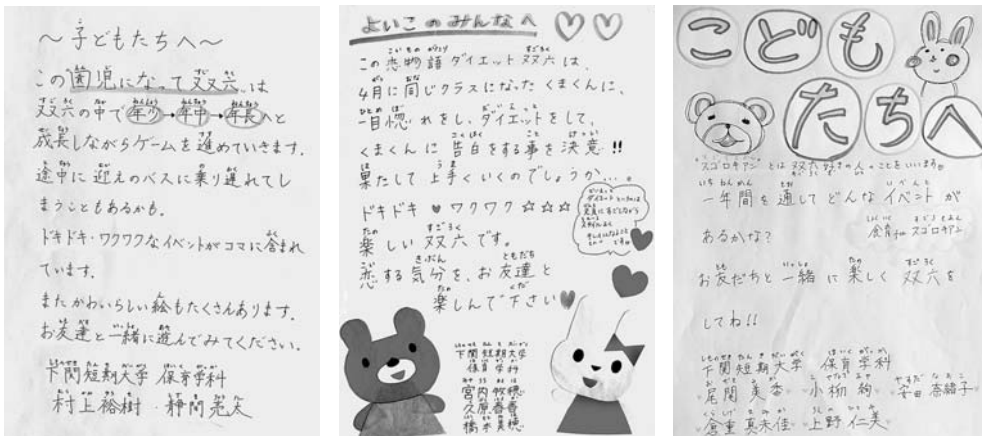 ～子どもたちへ～
この歯児になって双六は
双六の中で年少→年中→年長へと
成長しながらゲームを進めていきます。
途中に迎えのバスに乗り遅れてし
まうこともあるかも。
ドキドキ・ワクワクなイベントがコマに含まれ
ています。
またかわいらしい絵もたくさんあります。
お友達と一緒に遊んでみてください。
下関短期大学 保育学科
村上裕樹・静間亮太
よいこのみんなへ
この恋物語ダイエット双六は、
4月に同じクラスになったくまくんに、
一目惚れをし、ダイエットをして、
くまくんに告白をする事を決意!!
果たして上手くいくのでしょうか…。
ドキドキ♥ワクワク☆☆☆
楽しい双六です。
恋する気分を、お友達と
楽しんで下さい
下関短期大学
保育学科
宮内牧穂
久原春香
橋本美穂
こども
たちへ
スゴロキアンとは双六好きの人のことをいいます。
一年間を通してどんなイベントが
あるかな?
食育deスゴロキアン
お友だちと一緒に楽しく双六を
してね!!
下関短期大学 保育学科
尾関美香 小柳絢 安田奈緒子
倉重真未佳 上野仁美